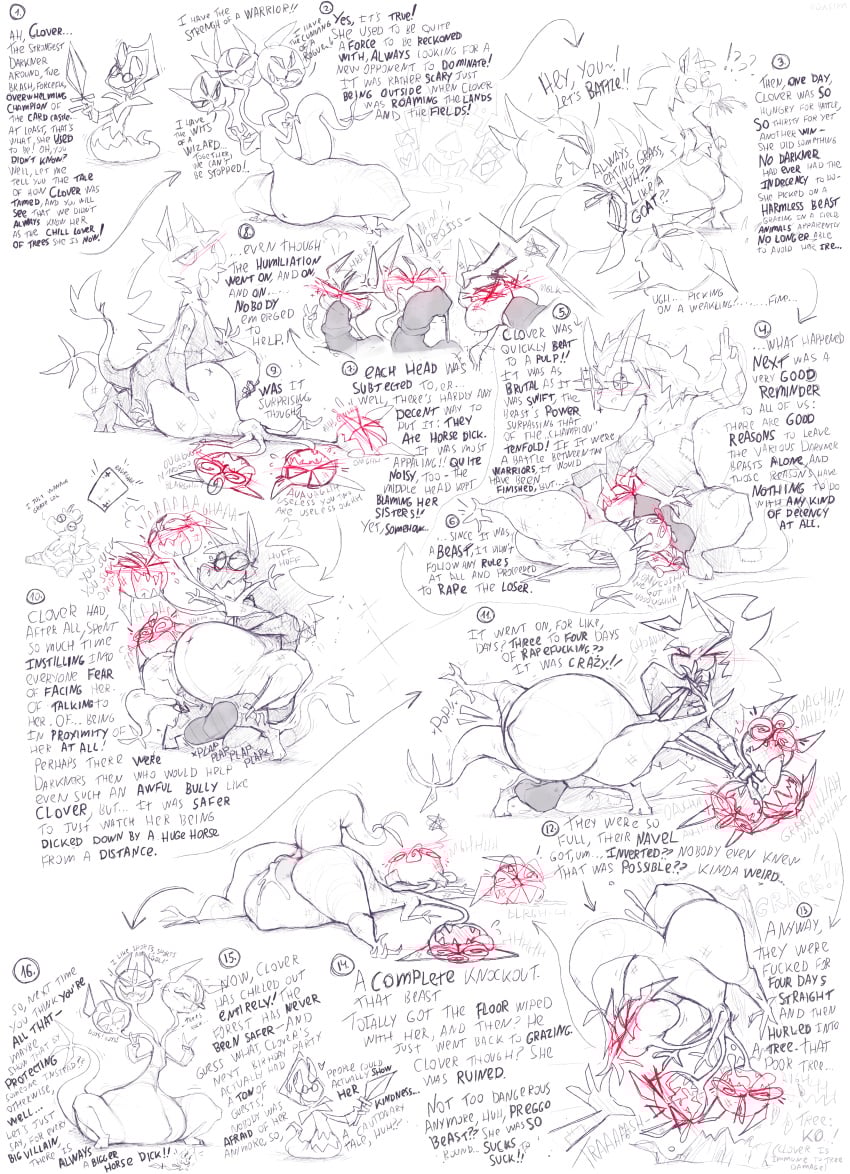 1.
AH, CLOVER...
THE STRONGEST
DARKNER
AROUND, THE
BRASH, FORCEFUL,
OVERWHELMING
CHAMPION OF
THE CARD CASTLE.
AT LEAST, THAT'S
WHAT SHE USED
TO BE! OH, YOU
DIDN'T KNOW?
WELL, LET ME
TELL YOU THE TALE
OF HOW CLOVER WAS
TAMED, AND YOU WILL
SEE THAT WE DIDN'T
ALWAYS KNOW HER
AS THE CHILL LOVER
OF TREES SHE IS NOW!
I HAVE THE
STRENGH OF A WARRIOR!!
I HAVE
THE CUNNING
OF A
ROGUE!
I HAVE
THE WITS
OF A
WIZARD...
TOGETHER,
WE CAN'T
BE STOPPED!
2.
YES, IT'S TRUE!
SHE USED TO BE QUITE
A FORCE TO BE RECKONED
WITH, ALWAYS LOOKING FOR A
NEW OPPONENT TO DOMINATE!
IT WAS RATHER SCARY JUST
BEING OUTSIDE WHEN CLOVER
WAS ROAMING THE LANDS
AND THE FIELDS!
HEY, YOU~!
LET'S BATTLE!!
!?
ALWAYS
EATING GRASS,
HUH??
LIKE A
GOAT??
UGH... PICKING
ON A WEAKLING!.......FINE...
3.
THEN, ONE DAY,
CLOVER WAS SO
HUNGRY FOR BATTLE,
SO THIRSTY FOR YET
ANOTHER WIN-
SHE DID SOMETHING
NO DARKNER
HAD EVER HAD THE
INDECENCY TO DO-
SHE PICKED ON A
HARMLESS BEAST
GRAZING IN A FIELD.
ANIMALS APPARENTLY
NO LONGER ABLE
TO AVOID HER IRE...
4.
...WHAT HAPPENED
NEXT WAS A
VERY GOOD
REMINDER
TO ALL OF US:
THERE ARE GOOD
REASONS TO LEAVE
THE VARIOUS DARKNER
BEASTS ALONE, AND
THOSE REASONS HAVE
NOTHING TO DO
WITH ANY KIND
OF DECENCY
AT ALL.
5.
CLOVER WAS
QUICKLY BEAT
TO A PULP!!
IT WAS AS
BRUTAL AS IT
WAS SWIFT, THE
BEAST'S POWER
SURPASSING THAT
OF THE "CHAMPION"
TENFOLD! IF IT WERE
A BATTLE BETWEEN TWO
WARRIORS, IT WOULD
HAVE BEEN
FINISHED, BUT...
6.
...SINCE IT WAS
A BEAST, IT DIDN'T
FOLLOW ANY RULES
AT ALL AND PROCEEDED
TO RAPE THE LOSER.
7.
EACH HEAD WAS
SUBJECTED TO, ER...
WELL, THERE'S HARDLY ANY
DECENT WAY TO
PUT IT: THEY
ATE HORSE DICK.
IT WAS MOST
APPALING!! QUITE
NOISY, TOO - THE
MIDDLE HEAD KEPT
BLAMING HER
SISTERS!!
YET, SOMEHOW...
8.
...EVEN THOUGH
THE HUMILIATION
WENT ON, AND ON,
AND ON......
NOBODY
EMERGED
TO
HELP.
9.
WAS IT
SURPRISING
THOUGH?
HUFF
HUFF
10.
CLOVER HAD,
AFTER ALL, SPENT
SO MUCH TIME
INSTILLING INTO
EVERYONE FEAR
OF FACING HER.
OF TALKING TO
HER. OF... BEING
IN PROXIMITY OF
HER AT ALL!
PERHAPS THERE WERE
DARKNERS THEN WHO WOULD HELP
EVEN SUCH AN AWFUL BULLY LIKE
CLOVER, BUT... IT WAS SAFER
TO JUST WATCH HER BEING
DICKED DOWN BY A HUGE HORSE
FROM A DISTANCE.
*PLAP
PLAP
PLAP
PLAP*
11.
IT WENT ON, FOR LIKE,
DAYS? THREE TO FOUR DAYS
OF RAPEFUCKING??
IT WAS CRAZY!!
*POP!*
12.
THEY WERE SO
FULL, THEIR NAVEL
GOT, UM... INVERTED?? NOBODY EVEN KNEW
THAT WAS POSSIBLE?? KINDA WEIRD...
13.
ANYWAY,
THEY WERE
FUCKED FOR
FOUR DAYS
STRAIGHT
AND THEN
HURLED INTO
A TREE. THAT
POOR TREE...
TREE:
KO!
(CLOVER IS
IMMUNE TO TREE
DAMAGE)
14.
A COMPLETE KNOCKOUT.
THAT BEAST
TOTALLY GOT THE FLOOR WIPED
WITH HER, AND THEN? HE
JUST WENT BACK TO GRAZING.
CLOVER THOUGH? SHE
WAS RUINED.
NOT TOO DANGEROUS
ANYMORE, HUH, PREGGO
BEAST?? SHE WAS SO
ROUND... SUCKS TO
SUCK!!
15.
NOW, CLOVER
WAS CHILLED OUT
ENTIRELY! THE
FOREST HAS NEVER
BEEN SAFER - AND
GUESS WHAT, CLOVER'S
NEXT BIRTHDAY PARTY
ACTUALLY HAD
A TON OF
GUESTS!
NOBODY WAS
AFRAID OF HER
ANYMORE, SO,
PEOPLE COULD
ACTUALLY SHOW
HER
KINDNESS...
A CAUTIONARY
TALE, HUH?
16.
SO, NEXT TIME
YOU THINK YOU'RE
ALL THAT-
MAYBE
SHOW THAT BY
PROTECTING
SOMEONE INSTEAD!?
OTHERWISE,
WELL...
LET'S JUST
SAY, FOR EVERY
BIG VILLAIN,
THERE IS
ALWAYS A BIGGER
HORSE DICK!!